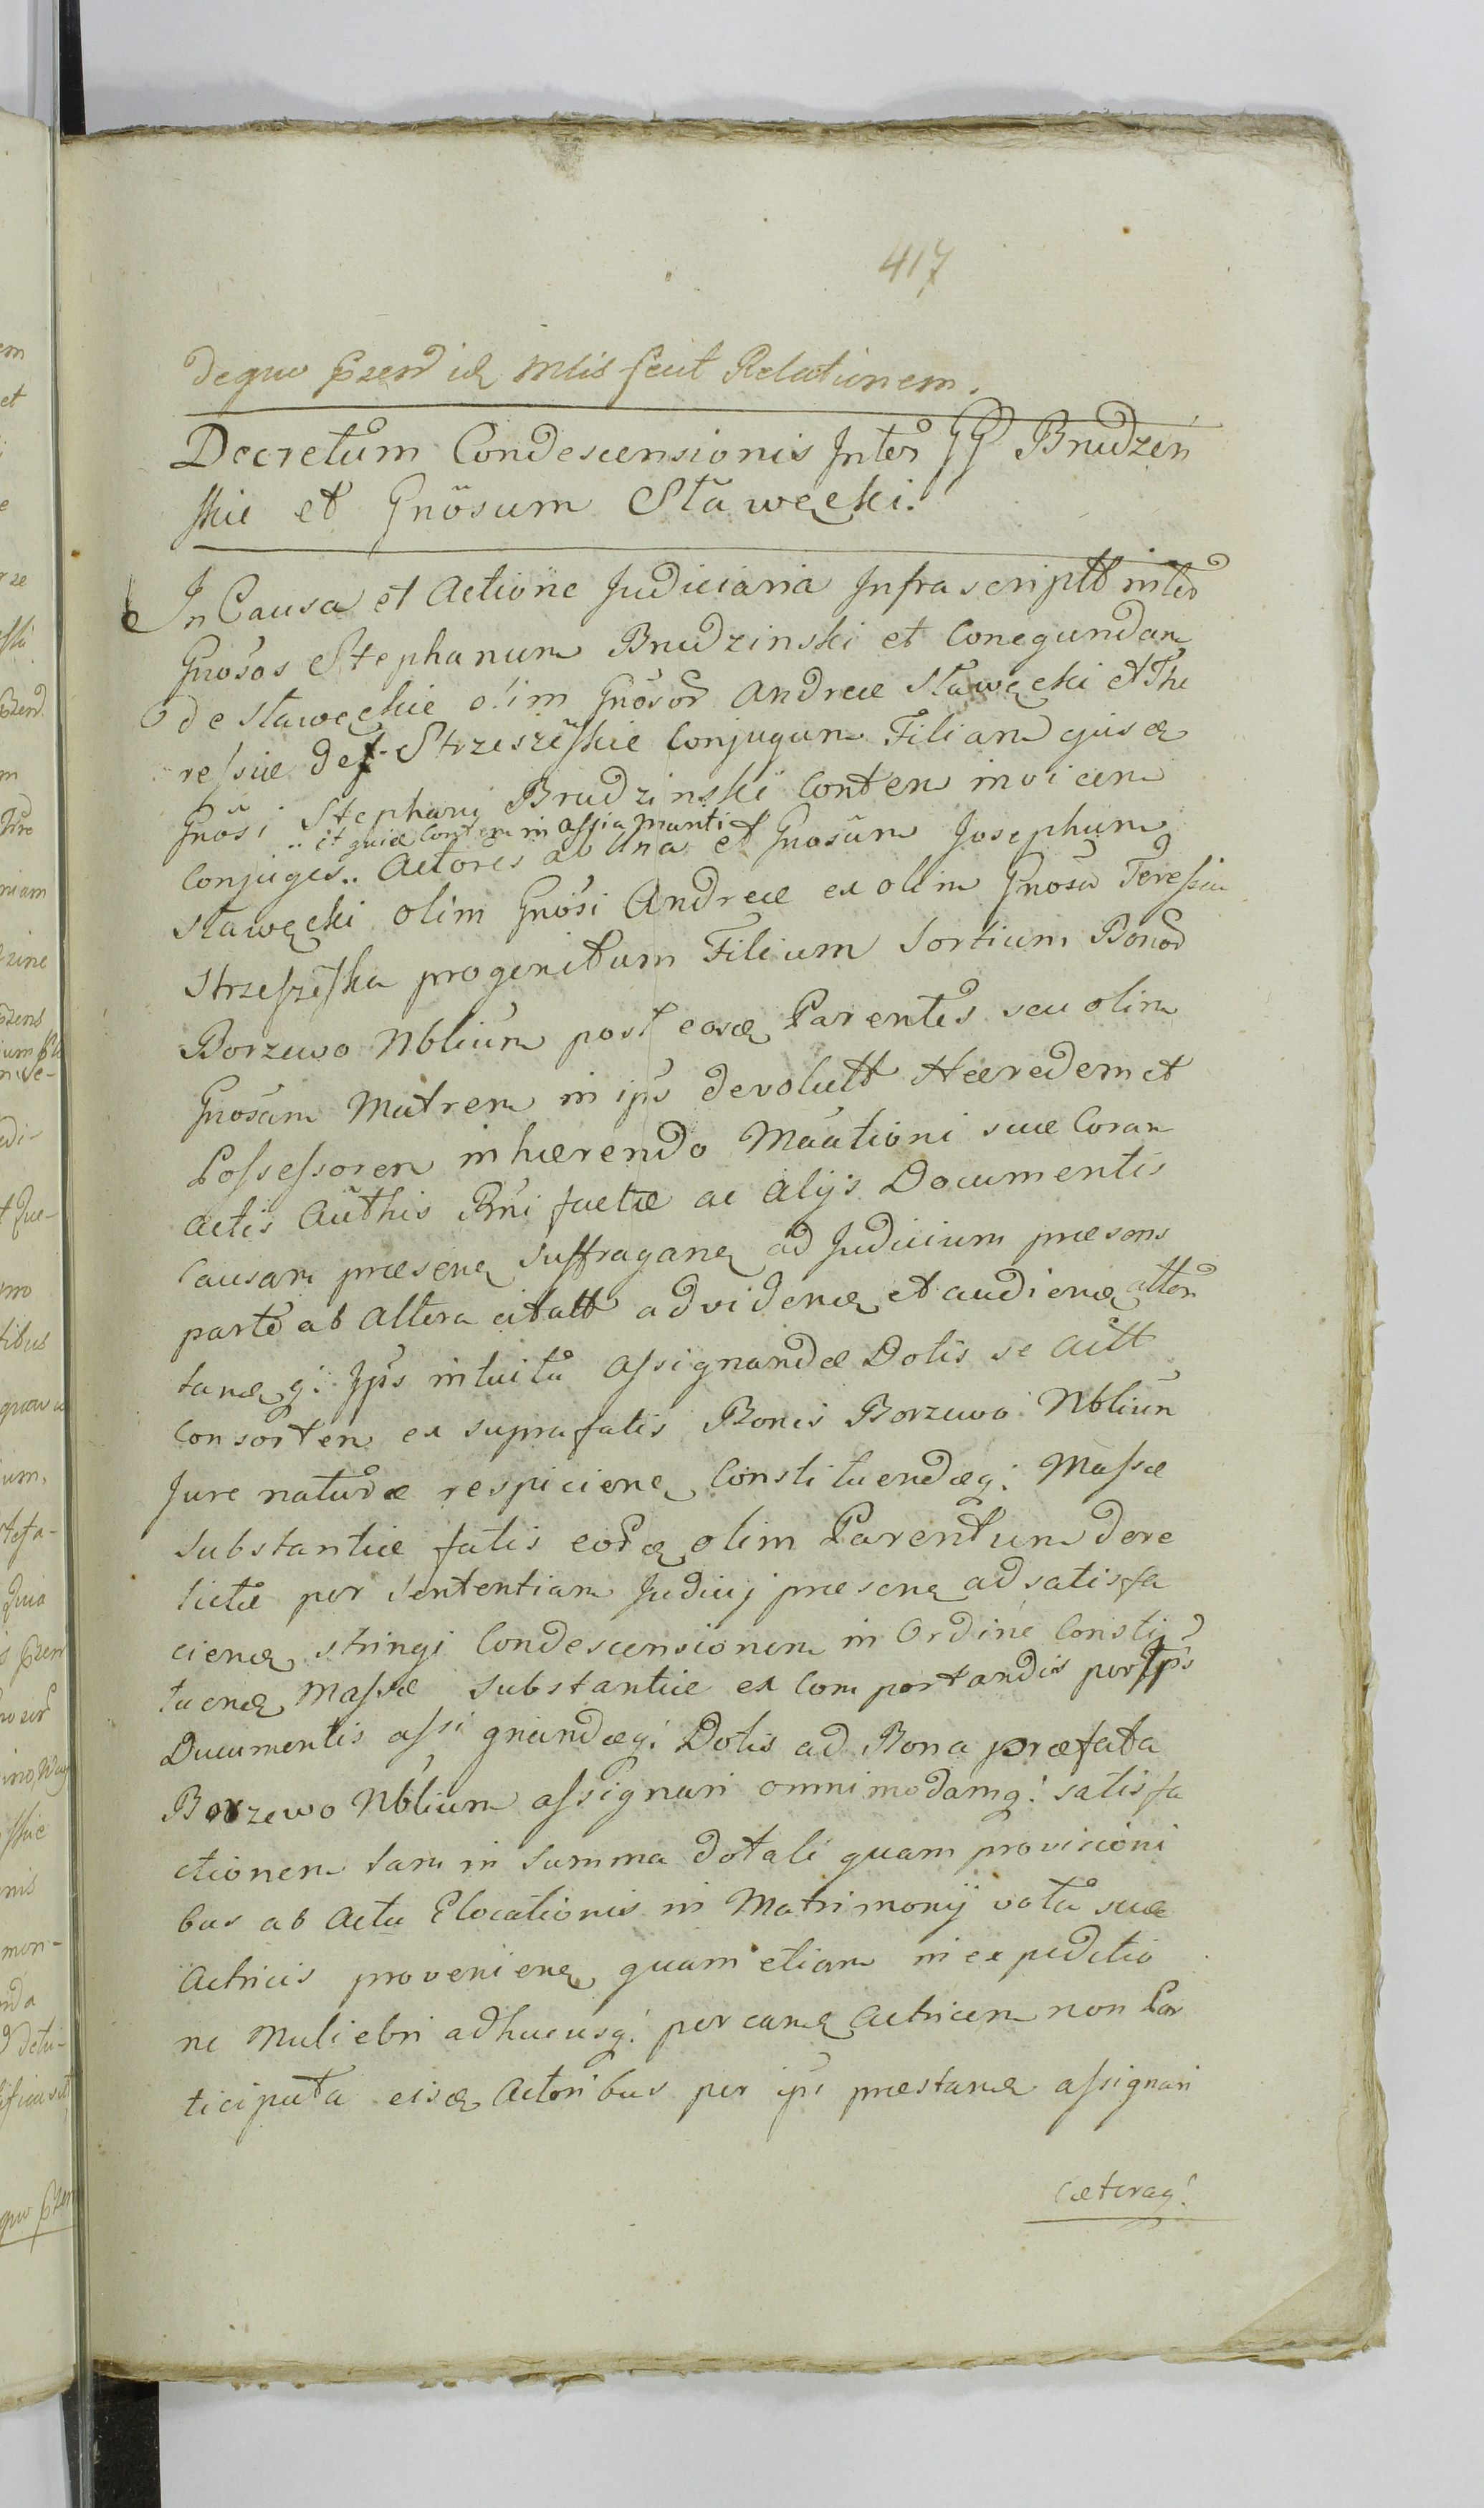 417
de quo Prnd idq Mlis fecit Relationem.
Decretum Condescensionis Inter GG Brudzeń
skie et Gnosum Stawęcki.
In Causa et Actione Judiciaria Infra scriptt inter
Gnosos Stephanum Brudzinski et Conegundam
de Stawęckie olim Gnosor Andreæ Stawęcki et The
ressiæ de Strzeszeskie Conjugum Filiam ejusq
Gnosi Stephani Brudzinski Contem invicem
.. et quia Contem in assia Mariti
Conjuges.. Actores ab una et Gnosum Josephum
Stawęcki olim Gnosi Andreæ ex olim Gnosa Teressia
Strzeszeska progenitum Filium Sortium Bonor
Borzewo Nblium post eosq Parentes seu olim
Gnosam Matrem in ips devolutt Hæredem et
Possessorem inhærendo Maationi suæ Coram
Actis Authis Prni factæ ac alijs Documentis
Causam præsenq suffraganq ad Judicium præsens
parte ab altera citatt ad videnq et audienq atten
tanq q: Ips intuitu assignandæ Dotis se Actt
Consortem ex suprafatis Bonis Borzewo Nblium
Jure naturæ respicienq Constituendæq: Massæ
Substantiæ fatis eorq olim Parentum dere
lictæ per Sententiam Judicij præsenq ad satisfa
cienq stringi Condescensionem in Ordine Consti
tuenq Massæ Substantiæ ex Comportandis per Ips
Documentis assignandæq: Dotis ad Bona præfata
Borzewo Nblium assignari omnimodamq: satisfa
ctionem tam in Summa dotali quam provisioni
bus ab Actu Elocationis in Matrimonij vota suæ
Actricis provenienq quam etiam in expeditio
ne Muliebri adhucusq: per eamq Actricem non Par
ticipata eisq Actoribus per ips præstanq assignari
Cæteraq: